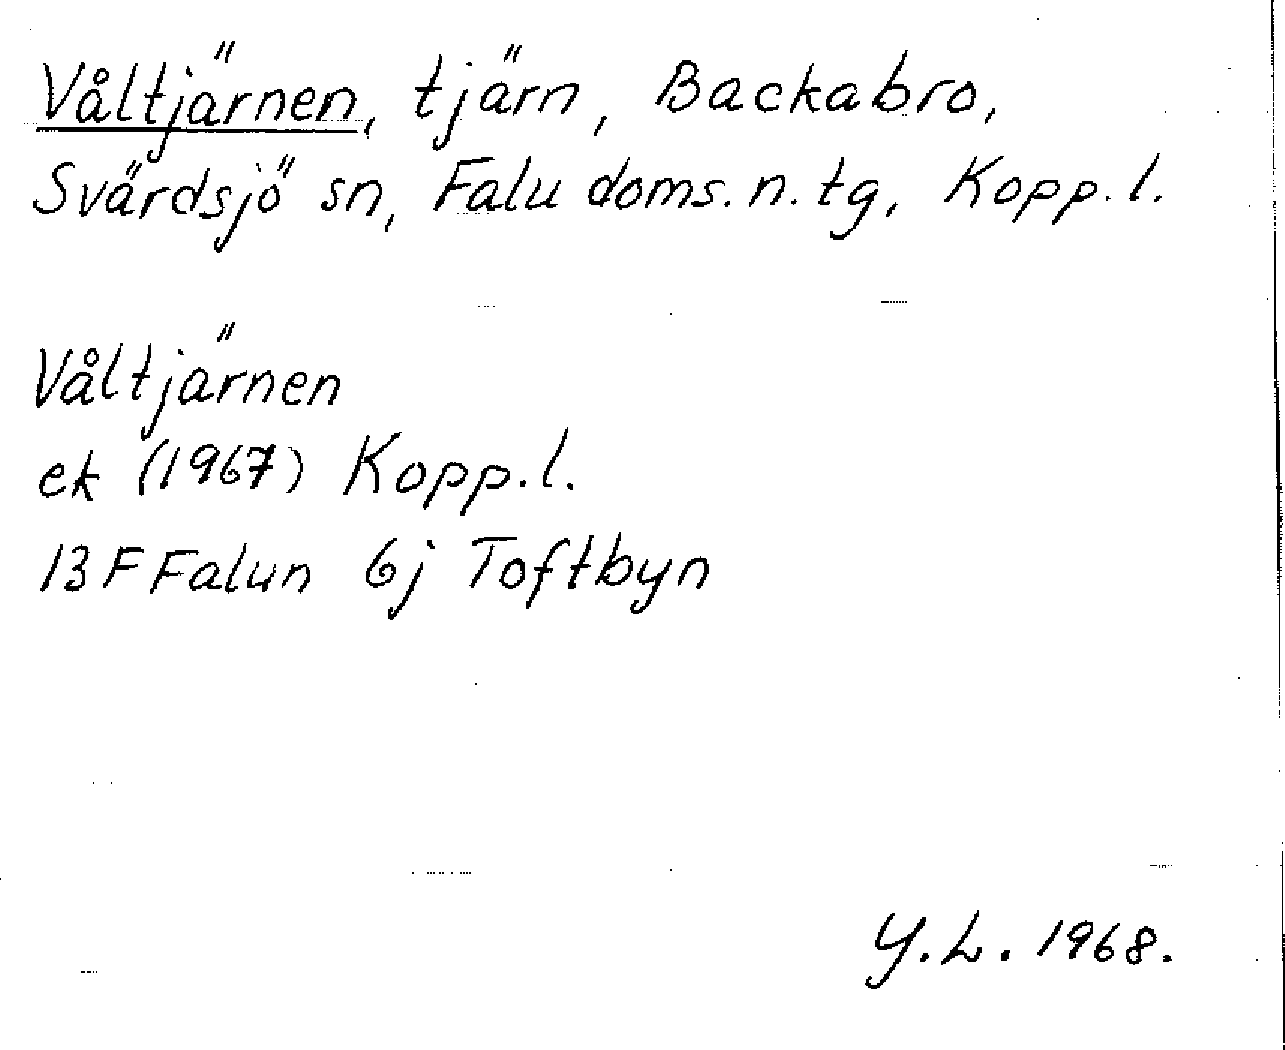 Våltjärnen, tjärn, Backabro,
Svärdsjö sn, Falu doms. n. tg, Kopp. l.
Våltjärnen
ek (1967) Kopp. l.
13 F Falun 6j Toftbyn
Y.L. 1968.